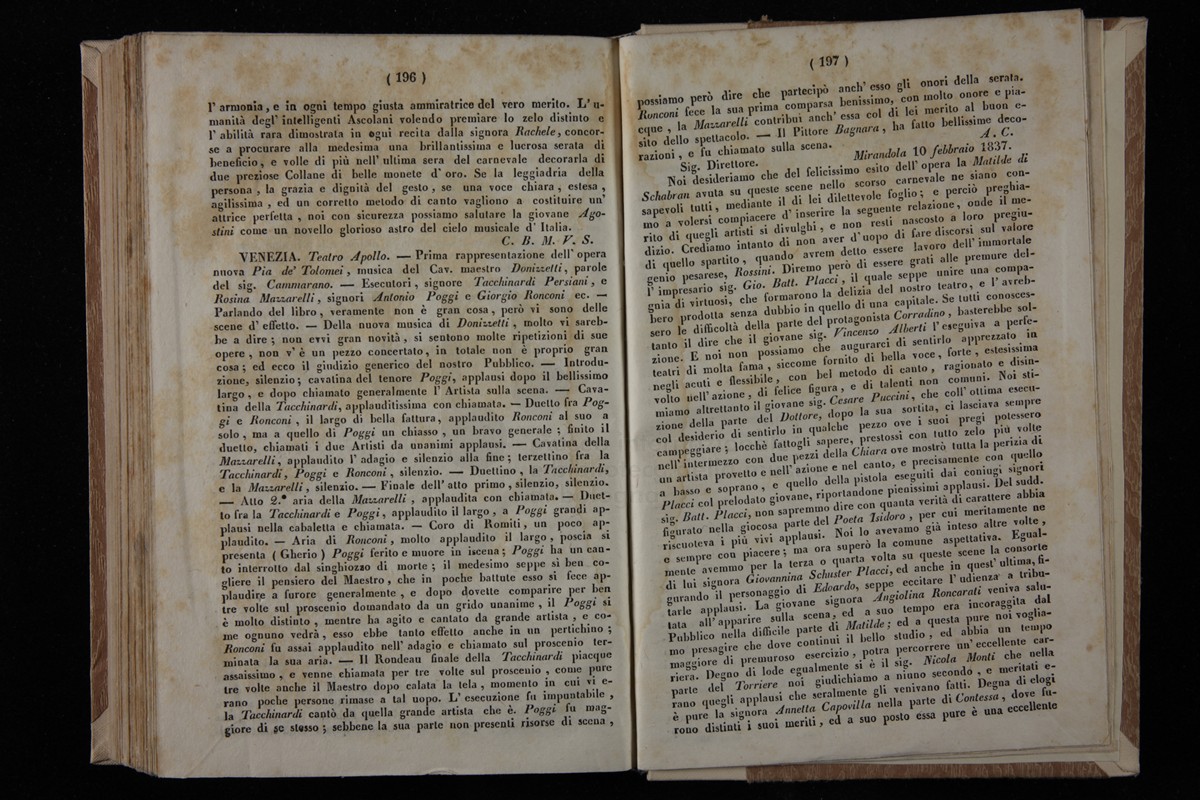 ( 196 )
l' armonia, e in ogni tempo giusta ammiratrice del vero merito. L' u-
manità degl' intelligenti Ascolani volendo premiare lo zelo distinto e
l' abilità rara dimostrata in ogni recita dalla signora Rachele, concor-
se a procurare alla medesima una brillantissima e lucrosa serata di
beneficio, e volle di più nell' ultima sera del carnevale decorarla di
due preziose Collane di belle monete d' oro. Se la leggiadria della
persona, la grazia e dignità del gesto, se una voce chiara, estesa,
agilissima, ed un corretto metodo di canto vagliono a costituire un'
attrice perfetta, noi con sicurezza possiamo salutare la giovane Ago-
stini come un novello glorioso astro del cielo musicale d' Italia.
C. B. M. V. S.
VENEZIA. Teatro Apollo. — Prima rappresentazione dell' opera
nuova Pia de' Tolomei, musica del Cav. maestro Donizzetti, parole
del sig. Cammarano. — Esecutori, signore Tacchinardi Persiani, e
Rosina Mazzarelli, signori Antonio Poggi e Giorgio Ronconi ec. —
Parlando del libro, veramente non è gran cosa, però vi sono delle
scene d' effetto. — Della nuova musica di Donizzetti, molto vi sareb-
be a dire; non evvi gran novità, si sentono molte ripetizioni di sue
opere, non v' è un pezzo concertato, in totale non è proprio gran
cosa; ed ecco il giudizio generico del nostro Pubblico. — Introdu-
zione, silenzio; cavatina del tenore Poggi, applausi dopo il bellissimo
largo, e dopo chiamato generalmente l' Artista sulla scena. — Cava-
tina della Tacchinardi, applauditissima con chiamata. — Duetto fra Pog-
gi e Ronconi, il largo di bella fattura, applaudito Ronconi al suo a
solo, ma a quello di Poggi un chiasso, un bravo generale; finito il
duetto, chiamati i due Artisti da unanimi applausi. — Cavatina della
Mazzarelli, applaudito l' adagio e silenzio alla fine; terzettino fra la
Tacchinardi, Poggi e Ronconi, silenzio. — Duettino, la Tacchinardi,
e la Mazzarelli, silenzio. — Finale dell' atto primo, silenzio, silenzio.
— Atto 2.° aria della Mazzarelli, applaudita con chiamata. — Duet-
to fra la Tacchinardi e Poggi, applaudito il largo, a Poggi grandi ap-
plausi nella cabaletta e chiamata. — Coro di Romiti, un poco ap-
plaudito. — Aria di Ronconi, molto applaudito il largo, poscia si
presenta ( Gherio ) Poggi ferito e muore in iscena; Poggi ha un can-
to interrotto dal singhiozzo di morte; il medesimo seppe sì ben co-
gliere il pensiero del Maestro, che in poche battute esso si fece ap-
plaudire a furore generalmente, e dopo dovette comparire per ben
tre volte sul proscenio domandato da un grido unanime, il Poggi si
è molto distinto, mentre ha agito e cantato da grande artista, e co-
me ognuno vedrà, esso ebbe tanto effetto anche in un pertichino;
Ronconi fu assai applaudito nell' adagio e chiamato sul proscenio ter-
minata la sua aria. — Il Rondeau finale della Tacchinardi piacque
assaissimo, e venne chiamata per tre volte sul proscenio, come pure
tre volte anche il Maestro dopo calata la tela, momento in cui vi e-
rano poche persone rimase a tal uopo. L' esecuzione fu impuntabile,
la Tacchinardi cantò da quella grande artista che è. Poggi fu mag-
giore di se stesso; sebbene la sua parte non presenti risorse di scena,
( 197 )
possiamo però dire che partecipò anch' esso gli onori della serata.
Ronconi fece la sua prima comparsa benissimo, con molto onore e pia-
cque, la Mazzarelli contribuì anch' essa col di lei merito al buon e-
sito dello spettacolo. — Il Pittore Bagnara, ha fatto bellissime deco-
razioni, e fu chiamato sulla scena.
A. C.
Sig. Direttore.
Mirandola 10 febbraio 1837.
Noi desideriamo che del felicissimo esito dell' opera la Matilde di
Schabran avuta su queste scene nello scorso carnevale ne siano con-
sapevoli tutti, mediante il di lei dilettevole foglio; e perciò preghia-
mo a volersi compiacere d' inserire la seguente relazione, onde il me-
rito di quegli artisti si divulghi, e non resti nascosto a loro pregiu-
dizio. Crediamo intanto di non aver d' uopo di fare discorsi sul valore
di quello spartito, quando avrem detto essere lavoro dell' immortale
genio pesarese, Rossini. Diremo però di essere grati alle premure del-
l' impresario sig. Gio. Batt. Placci, il quale seppe unire una compa-
gnia di virtuosi, che formarono la delizia del nostro teatro, e l' avreb-
bero prodotta senza dubbio in quello di una capitale. Se tutti conosces-
sero le difficoltà della parte del protagonista Corradino, basterebbe sol-
tanto il dire che il giovane sig. Vincenzo Alberti l' eseguiva a perfe-
zione. E noi non possiamo che augurarci di sentirlo apprezzato in
teatri di molta fama, siccome fornito di bella voce, forte, estesissima
negli acuti e flessibile, con bel metodo di canto, ragionato e disin-
volto nell' azione, di felice figura, e di talenti non comuni. Noi sti-
miamo altrettanto il giovane sig. Cesare Puccini, che coll' ottima esecu-
zione della parte del Dottore, dopo la sua sortita, ci lasciava sempre
col desiderio di sentirlo in qualche pezzo ove i suoi pregi potessero
campeggiare; locchè fattogli sapere, prestossi con tutto zelo più volte
nell' intermezzo con due pezzi della Chiara ove mostrò tutta la perizia di
un artista provetto e nell' azione e nel canto, e precisamente con quello
a basso e soprano, e quello della pistola eseguiti dai coniugi signori
Placci col prelodato giovane, riportandone pienissimi applausi. Del sudd.
sig. Batt. Placci, non sapremmo dire con quanta verità di carattere abbia
figurato nella giocosa parte del Poeta Isidoro, per cui meritamente ne
riscuoteva i più vivi applausi. Noi lo avevamo già inteso altre volte,
e sempre con piacere; ma ora superò la comune aspettativa. Egual-
mente avemmo per la terza o quarta volta su queste scene la consorte
di lui signora Giovannina Schuster Placci, ed anche in quest' ultima, fi-
gurando il personaggio di Edoardo, seppe eccitare l' udienza a tribu-
tarle applausi. La giovane signora Angiolina Roncarati veniva salu-
tata all' apparire sulla scena, ed a suo tempo era incoraggita dal
Pubblico nella difficile parte di Matilde; ed a questa pure noi voglia-
mo presagire che dove continui il bello studio, ed abbia un tempo
maggiore di premuroso esercizio, potra percorrere un' eccellente car-
riera. Degno di lode egualmente si è il sig. Nicola Monti che nella
parte del Torriere noi giudichiamo a niuno secondo, e meritati e-
rano quegli applausi che seralmente gli venivano fatti. Degna di elogi
è pure la signora Annetta Capovilla nella parte di Contessa, dove fu-
rono distinti i suoi meriti, ed a suo posto essa pure è una eccellente